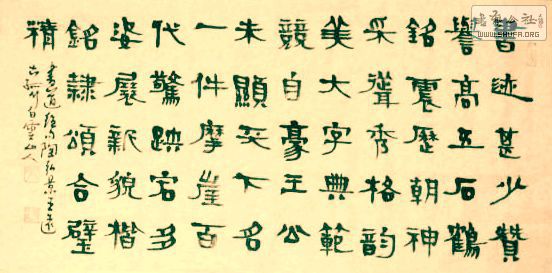 書迹甚少贊
譽高五石鶴
銘震歷朝神
采聳秀格韵
美大字典範
競自豪王公
未顯天下名
一件摩崖百
代驚跌宕多
姿展新貌楷
銘隸頌合璧
精
書道陶弘景王遠
古白雲山人
WWW.SHUFA.ORG